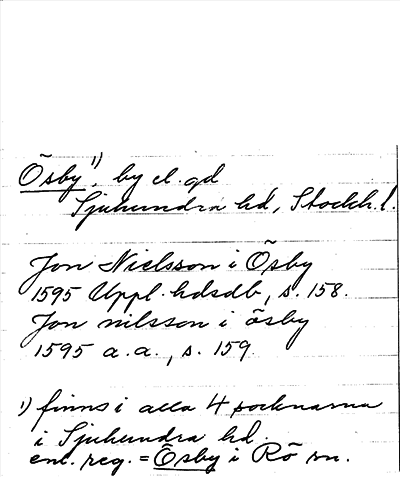 Ösby¹⁾, by el. gd
Sjuhundra hd, Stockh. l.
Jon Nielsson i Ösby
1595 Uppl. hdsdb, s. 158.
Jon nilsson i ösby
1595 a. a., s. 159
¹⁾ finns i alla 4 socknarna
i Sjuhundra hd.
enl. reg. = Ösby i Rö sn.